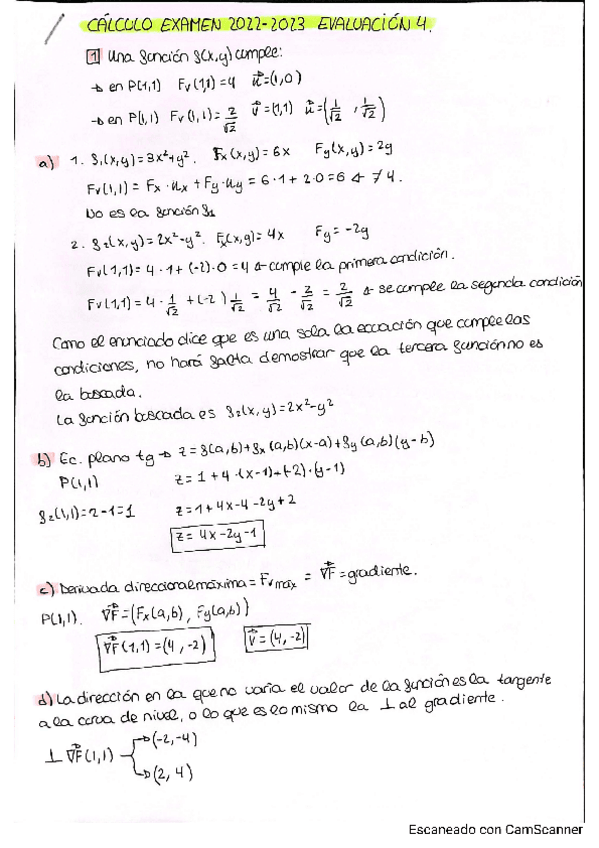 CÁLCULO EXAMEN 2022-2023 EVALUACIÓN 4.
1 Una función f(x,y) cumple:
→ en P(1,1) Fv(1,1)=4 u⃗=(1,0)
→ en P(1,1) Fv(1,1)=2/√2 v⃗=(1,1) u⃗=(1/√2, 1/√2)
a) 1. f₁(x,y)=3x²+y². Fx(x,y)=6x Fy(x,y)=2y
Fv(1,1)=Fx·ux+Fy·uy=6·1+2·0=6 ← ≠4.
No es la función f₁
2. f₂(x,y)=2x²-y². Fx(x,y)=4x Fy=-2y
Fv(1,1)=4·1+(-2)·0=4 ← cumple la primera condición.
Fv(1,1)=4·1/√2+(-2)1/√2=4/√2-2/√2=2/√2 ← se cumple la segunda condición
Como el enunciado dice que es una sola la ecuación que cumple las
condiciones, no hará falta demostrar que la tercera función no es
la buscada.
La función buscada es f₂(x,y)=2x²-y²
b) Ec. plano tg → z=f(a,b)+fx(a,b)(x-a)+fy(a,b)(y-b)
P(1,1) z=1+4·(x-1)+(-2)·(y-1)
f₂(1,1)=2-1=1 z=1+4x-4-2y+2
z=4x-2y-1
c) Derivada direccional máxima=Fvmáx=∇F⃗=gradiente.
P(1,1). ∇F⃗=(Fx(a,b), Fy(a,b))
∇F⃗(1,1)=(4,-2) v⃗=(4,-2)
d) La dirección en la que no varía el valor de la función es la tangente
a la curva de nivel, o lo que es lo mismo la ⊥ al gradiente.
⊥∇F⃗(1,1) → (-2,-4)
→ (2,4)
Escaneado con CamScanner